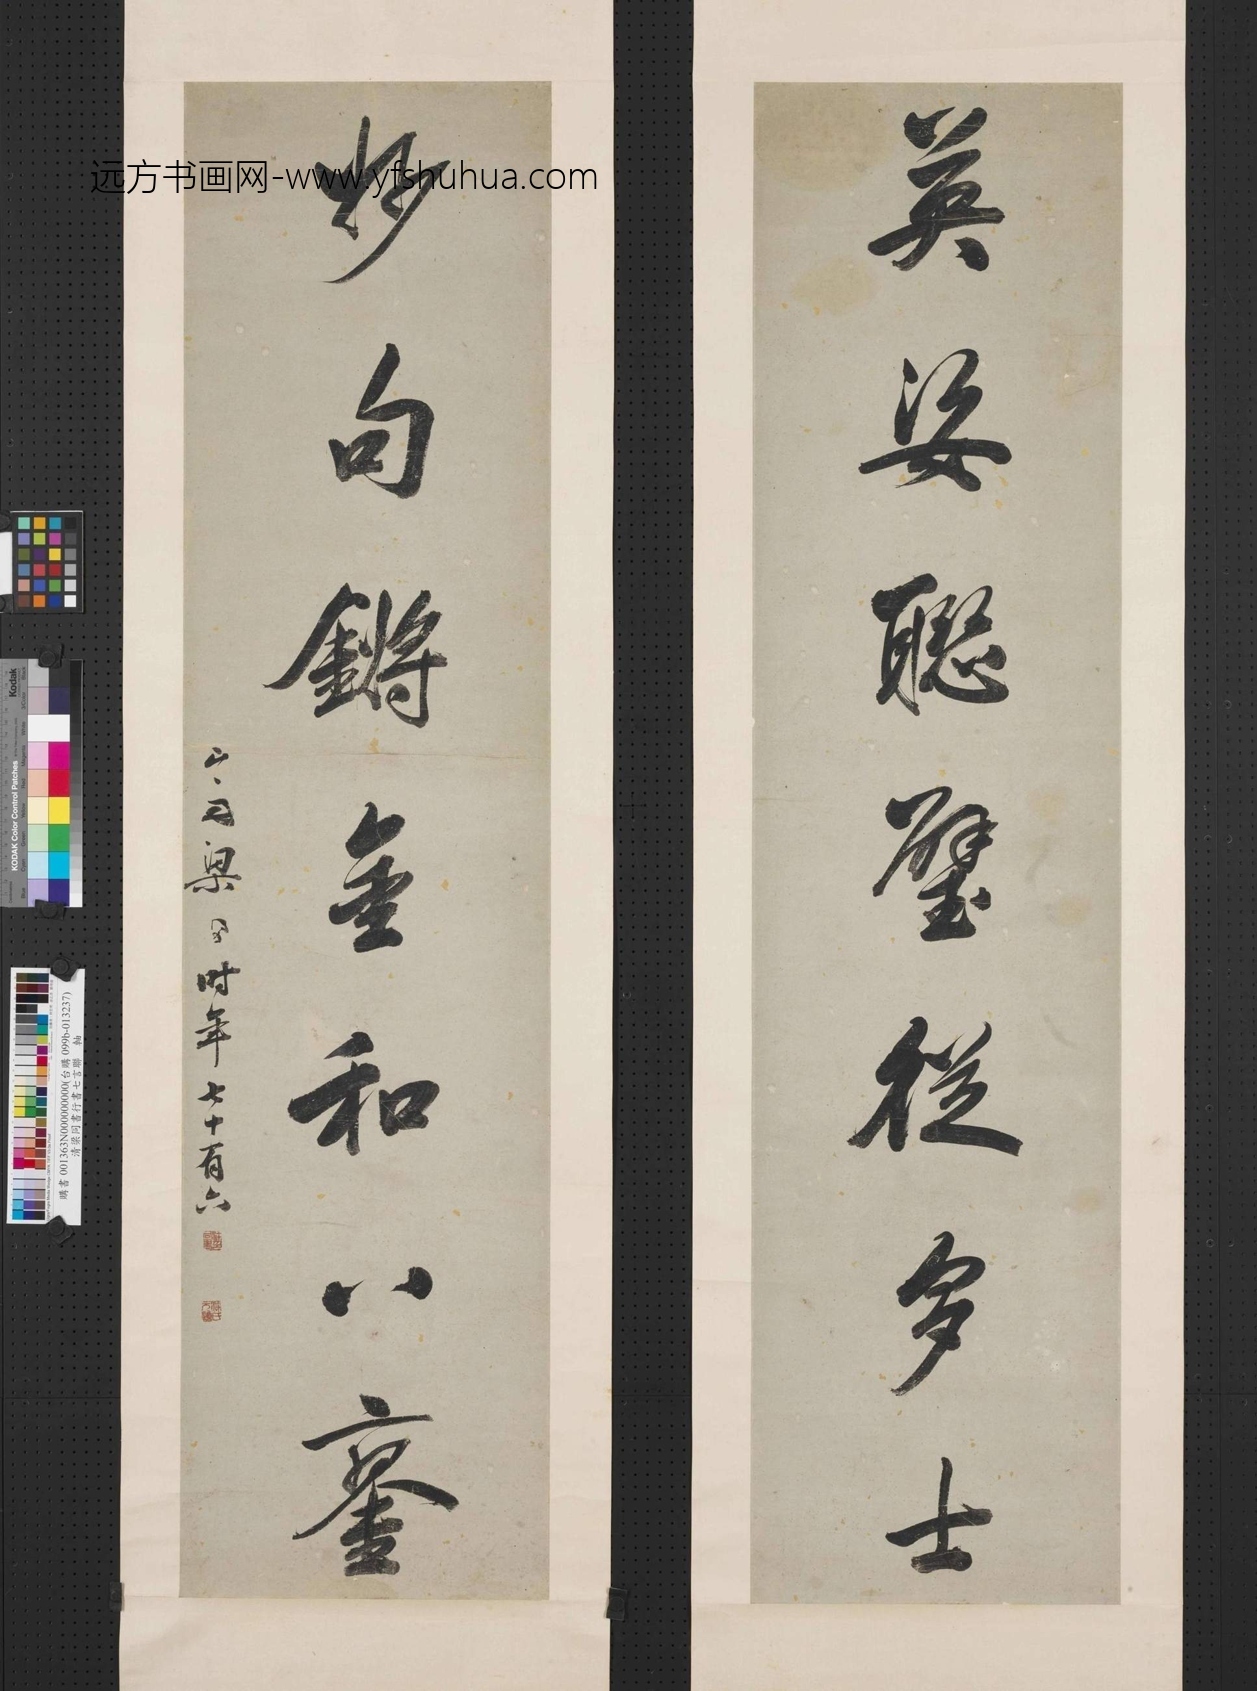 英姿聡璧從多士
妙句鏘金和八鑾
山舟梁同書時年七十有六
远方书画网-www.yfshuhua.com
Kodak
KODAK Color Control Patches
購書 001363N000000000(台購 099b-013237)
清梁同書行書七言聯　軸